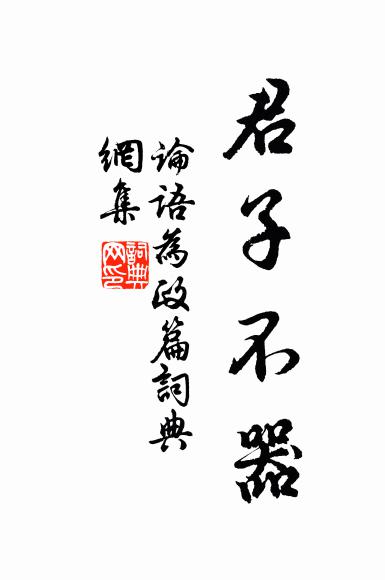 君子不器
論語為政篇詞典
網集
詞典
网印